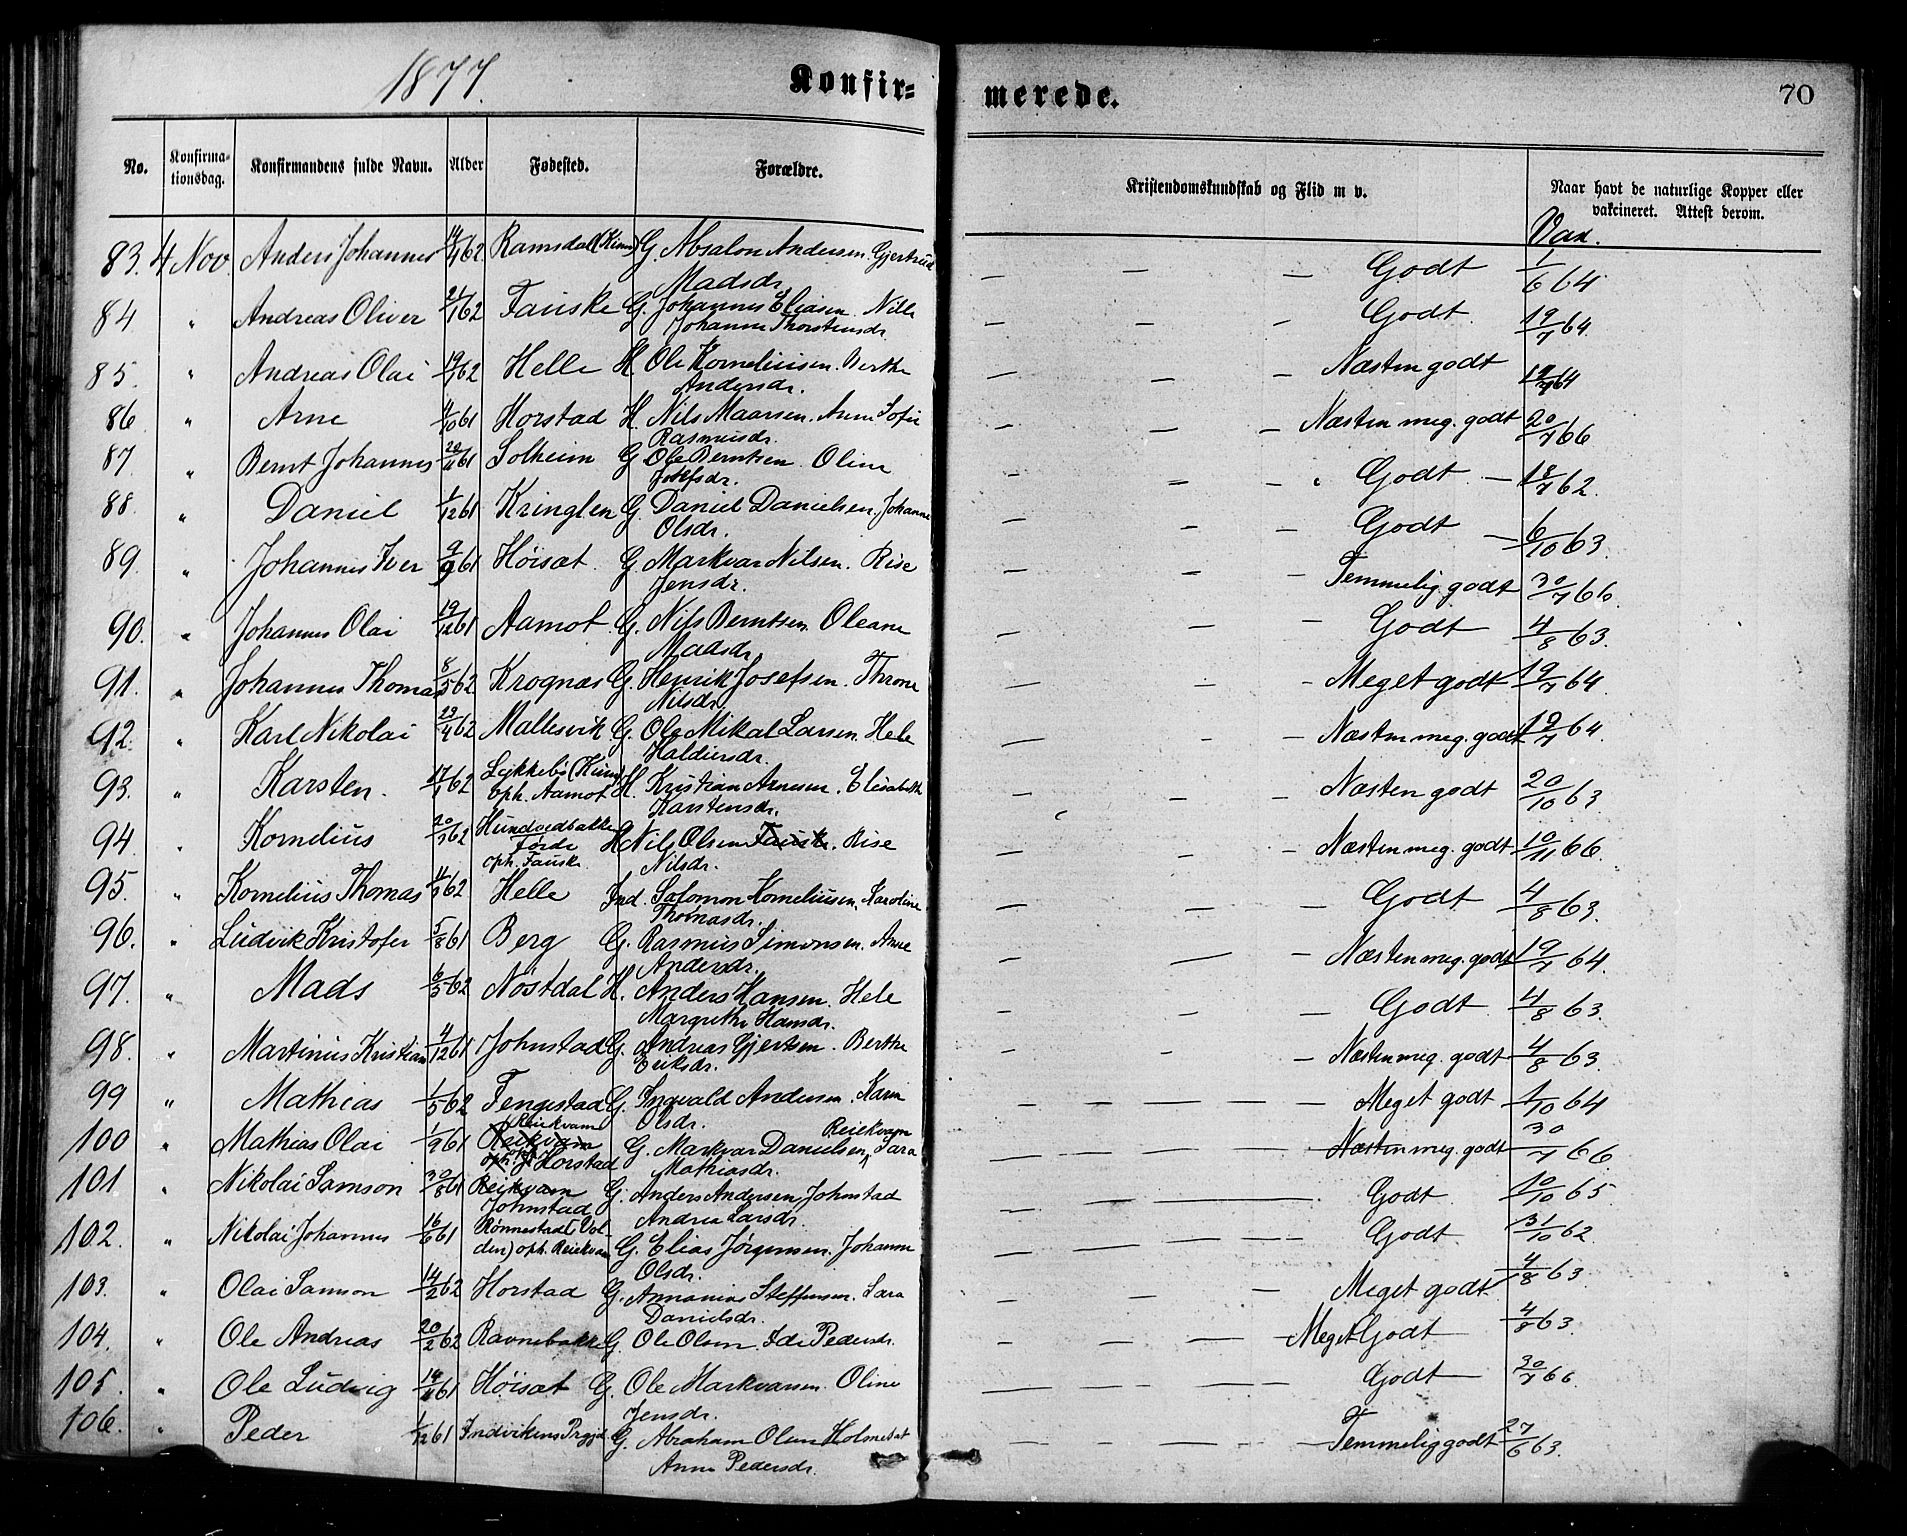 1877.
Konfir=
merede.
70
No.
Konfirma-
tionsdag.
Konfirmandens fulde Navn.
Alder
Fødested.
Forældre.
Kristendomskundskab og Flid m v.
Naar havt de naturlige Kopper eller
vakcineret. Attest derom.
Vax.
83. 4 Nov Anders Johannes 14/4 62 Ramsdal (Kinn) G. Absalon Andersen. Gjertrud — — — Godt 1/6 64
Madsdr.
84 " Andreas Oliver 21/1 62 Fauske G. Johannes Eliasen. Nille — — — Godt. 19/7 64.
Johanne Thorstensdr.
85. " Andreas Olai 19/1 62 Helle H. Ole Korneliusen. Berthe — — — Næsten godt 19/7 64
Andersdr.
86 " Arne 4/10 61 Horstad H. Nils Maarsen. Anne Sofie — — — Næsten meg. godt 20/7 66
Rasmusdr.
87. " Bernt Johannes 20/11 61 Solheim G Ole Berntsen. Oline — — Godt — 18/7 62.
Josefsdr.
88. " Daniel 1/12 61 Kringlen G. Daniel Danielsen. Johanne — — — Godt — 6/10 63.
Olsdr.
89. " Johannes Iver 9/9 61 Høisæt. G. Markvar Nilsen. Rise — — — Temmelig godt 30/7 66
Jensdr.
90. " Johannes Olai 19/12 61 Aamot. G. Nils Berntsen. Oleane — — — Godt 4/8 63.
Madsdr.
91. " Johannes Thomas 8/5 62 Krognæs G. Henrik Josefsen. Throne — — — Meget godt 19/7 64.
Nilsdr.
92. " Karl Nikolai 23/4 62 Mallesvik G. Ole Mikal Larsen. Hele — — — Næsten meg. godt 19/7 64.
Haldorsdr.
93. " Karsten. 17/1 62 (Kinn) H. Kristian Arnesen. Elisabeth — — — Næsten godt 20/10 63
oph. Aamot Karstensdr.
94. " Kornelius 20/7 62 Hundvedbakke H Nils Olsen Fauske. Rise — — — Næsten meg. godt 10/11 66.
Førde
oph. Fauske Nilsdr.
95. " Kornelius Thomas 4/3 62 Helle Ind. Salomon Korneliusen. Karoline — — — Godt 4/8 63.
Thomasdr.
96. " Ludvik Kristofer 5/8 61 Berg G. Rasmus Simonsen. Anne — — — Næsten meg. godt 19/7 64.
Andersdr.
97. " Mads 6/5 62 Nøstdal H. Anders Hansen. Hele — — — Godt 4/8 63.
Margrethe Hansdr.
98. " Martinus Kristian 4/12 61 Johnstad G. Andreas Gjertsen. Berthe — — — Næsten meg. godt 4/8 63.
Eriksdr.
99 " Mathias 1/5 62 Fengestad G. Ingvald Andersen. Karen — — — — Meget godt 1/10 64
Olsdr.
Reiekvam
Reiekvam
100 " Mathias Olai 1/9 61 Reiekvam G. Markvar Danielsen, Sara — — — — Næsten meg. godt 30/7 66
oph. Horstad Mathiasdr.
101 " Nikolai Samson 30/8 61 Reiekvam G. Anders Andersen Johnstad — — — — Godt 10/10 65
Johnstad Andrea Larsdr.
102. " Nikolai Johannes 16/6 61 Rønnestad (Vol- — — — — Godt 31/10 62
den) oph. Reiekvam G. Elias Jørgensen. Johanne
Olsdr.
103. " Olai Samson 14/2 62 Horstad G. Annanias Steffensen. Sara — — — Meget godt 4/8 63.
Danielsdr.
104. " Ole Andreas 20/2 62 Ravnebakke G. Ole Olsen. Ide Pedersdr. — — — — Meget Godt 4/8 63.
105. " Ole Ludvig 14/11 61 Høisæt G. Ole Markvarsen. Oline — — — — Godt 30/7 66
Jensdr.
106. " Peder 1/12 61 Indvikens Prgjd G. Abraham Olsen Holmesæt — — — — Temmelig godt 27/6 63.
Anne Pedersdr.